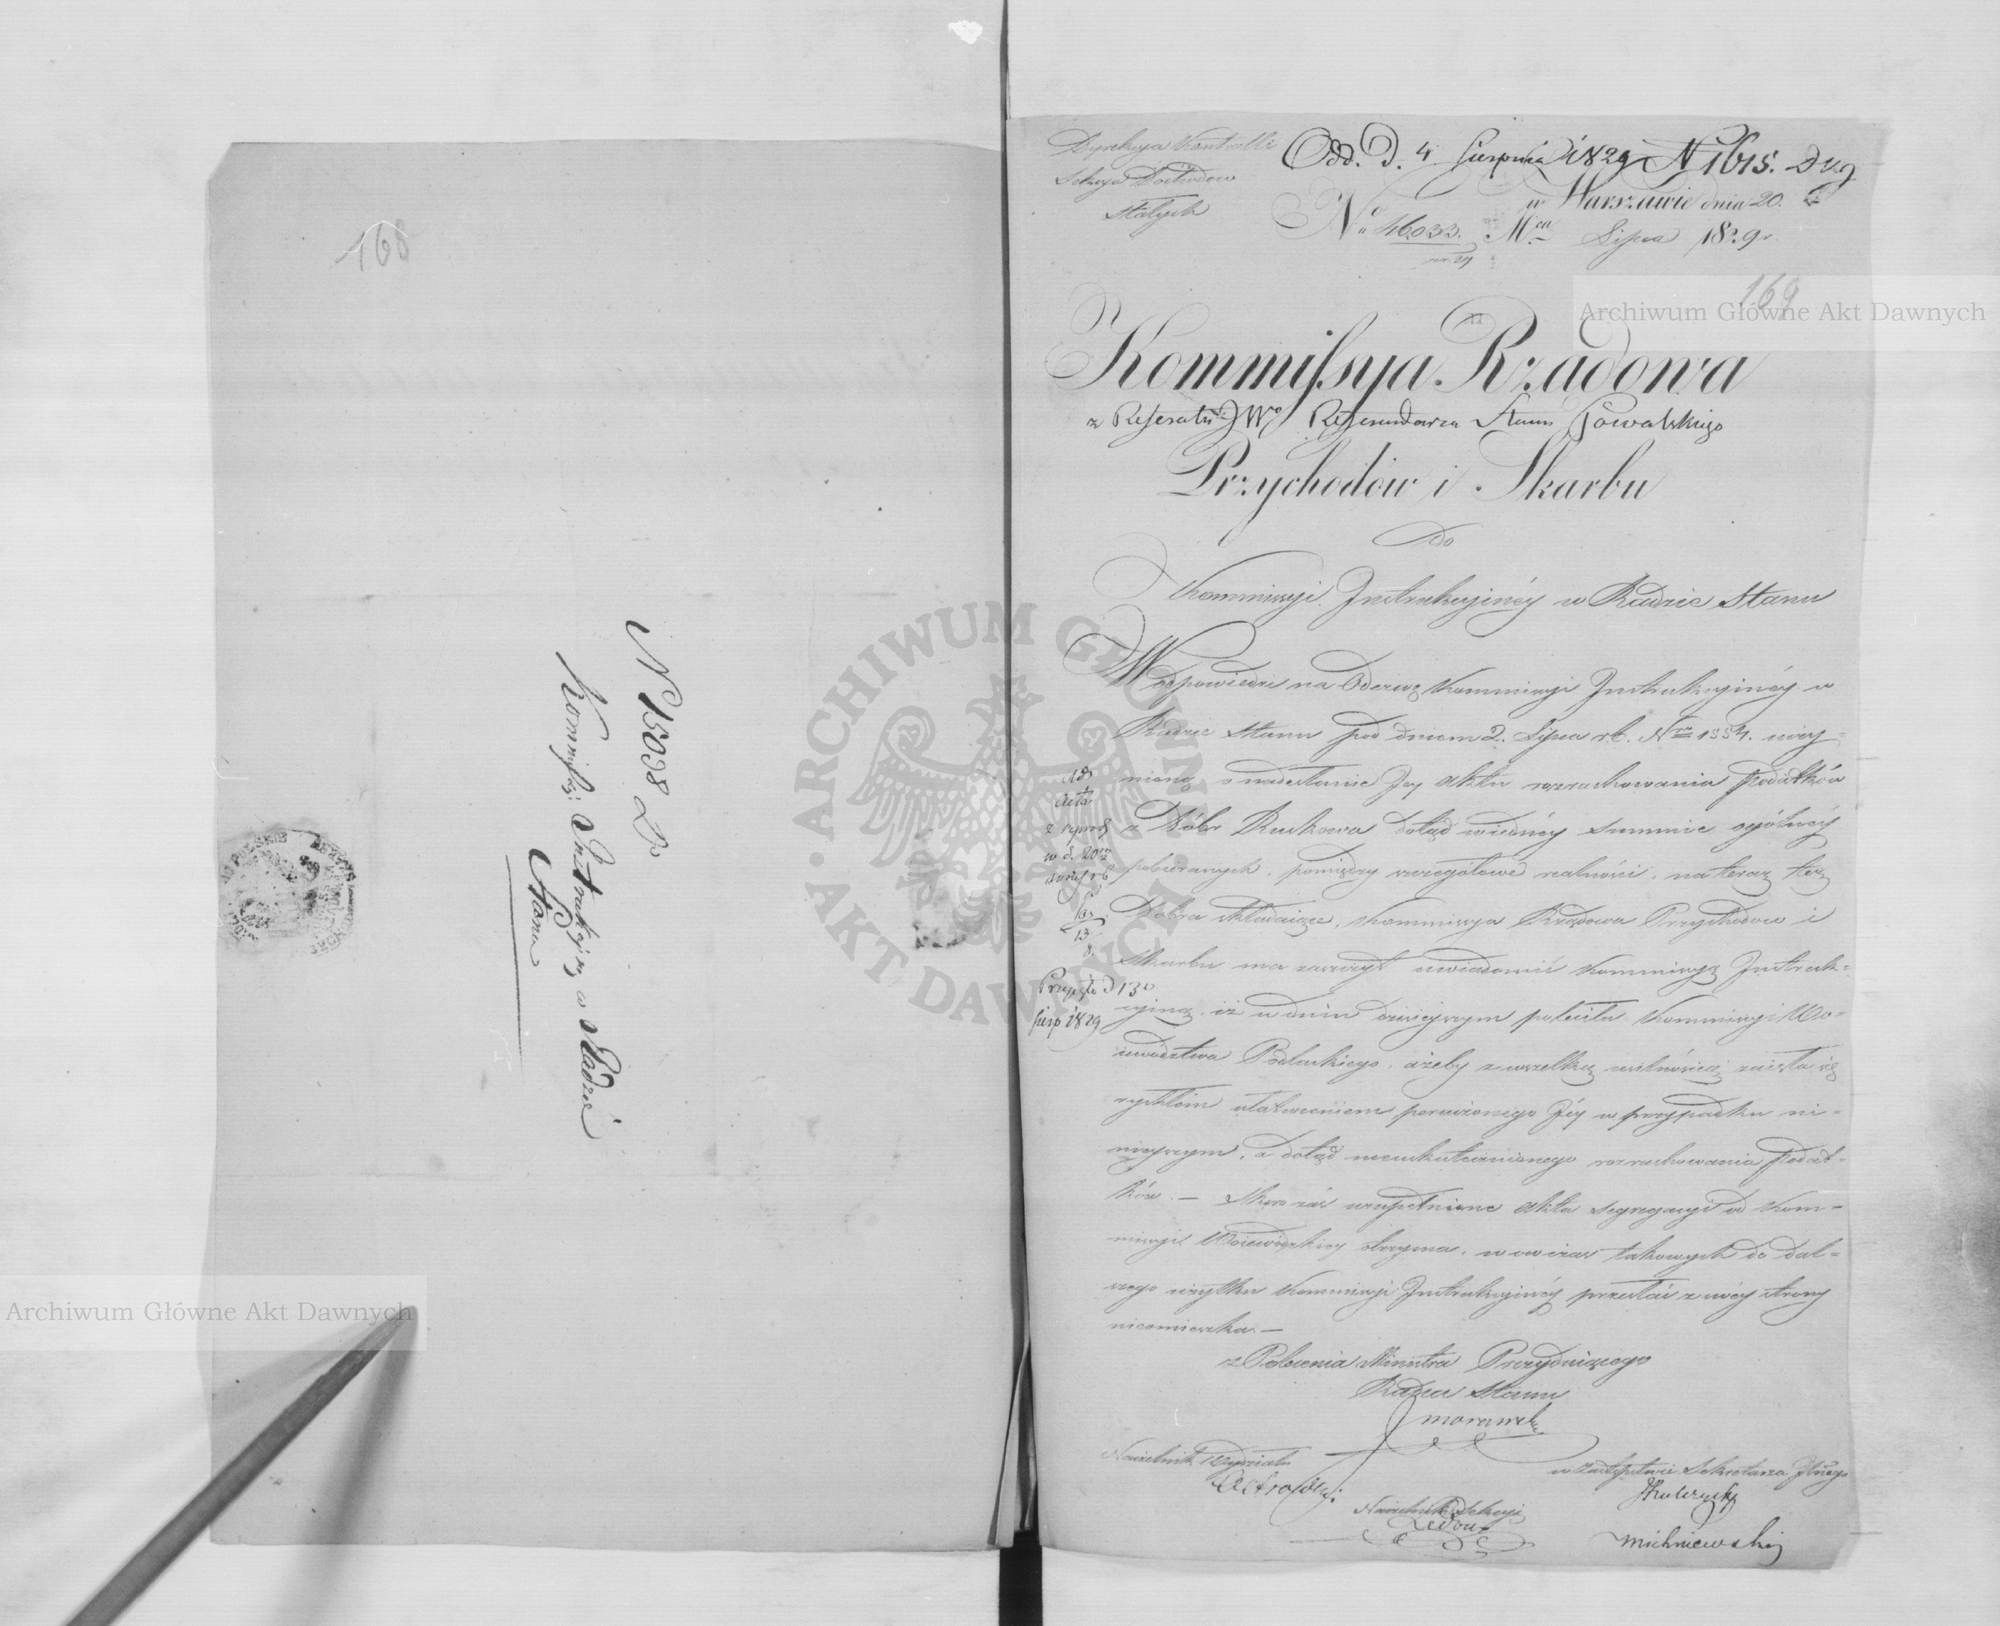 168
N 15098 D
Kommissyi Instrukcyiney w Radzie
Stanu
Dyrekcya Kontrolli
Sekcya Dochodów
Stałych
Odd. D. 4 Sierpnia 1829 N 1615.
w Warszawie dnia 20.
No 46033. Mca Lipca 1829 r
169
Archiwum Główne Akt Dawnych
Kommissya Rządowa
z Referatu JWo Referendarza Stanu Kowalskiego
Przychodów i Skarbu
Do
Kommissyi Instrukcyinéy w Radzie Stanu
W odpowiedzi na Odezwę Kommissyi Instrukcyinéy w
Radzie Stanu pod dniem 2. Lipca r.b. Nro 1334. uczy-
nioną o nadesłanie Jey Aktu rozrachowania Podatków
z Dóbr Ruskowa dotąd w iednéy summie ogólnéy
pobieranych, pomiędzy szczegółowe realności, na teraz też
Dobra składaiące, Kommissya Rządowa Przychodów i
Skarbu ma zaszczyt uwiadomić Kommissyą Instruk-
cyiną, iż w dniu dzisieyszym poleciła Kommissyi Wo-
iewództwa Podlaskiego, ażeby z wszelką usilnością zaięła się
rychłém ułatwieniem poruczonego Jéy w przypadku ni-
nieyszym, a dotąd nieuskutecznionego rozrachowania Podat-
ków. — Skoro zaś uzupełnione Akta segregacyi od Kom-
missyi Woiewódzkiey otrzyma, wówczas takowych do dal-
szego użytku Kommissyi Instrukcyinéy przesłać z swéy strony
nieomieszka. —
Przyszło d 13o
Sierp 1829
z Polecenia Ministra Prezyduiącego
Radca Stanu
Morawski
Naczelnik Wydziału
w Zastępstwie Sekretarza Jlnego
Naczelnik Sekcyi
Michniewski
Archiwum Główne Akt Dawnych
ARCHIWUM GŁÓWNE AKT DAWNYCH